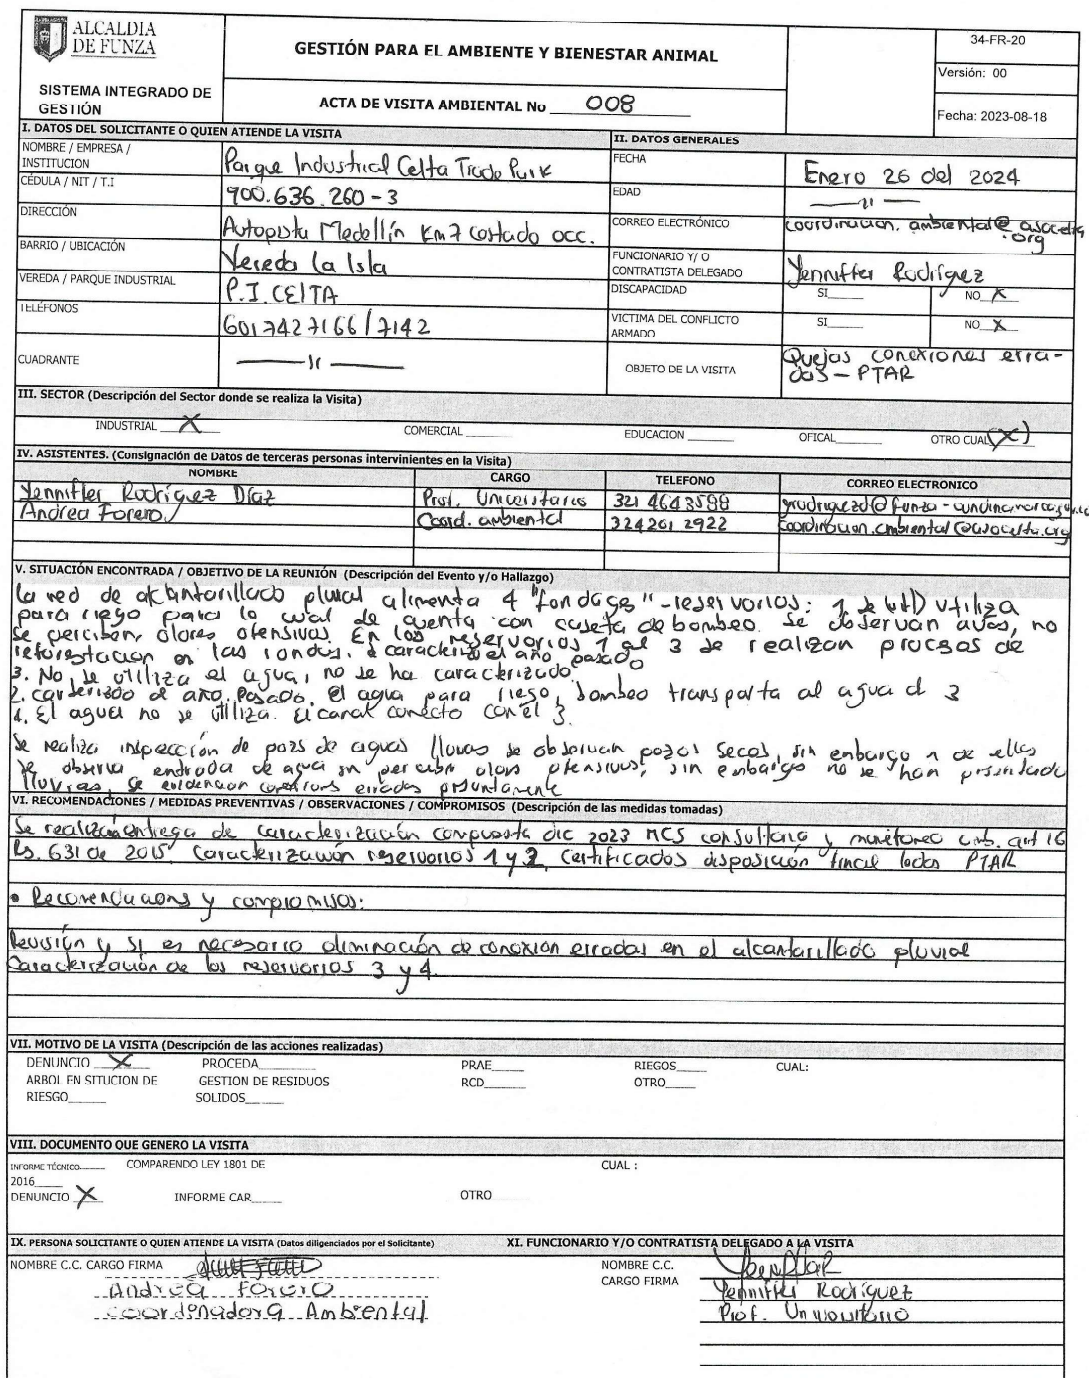 ALCALDIA
DE FUNZA
SISTEMA INTEGRADO DE
GESTIÓN
GESTIÓN PARA EL AMBIENTE Y BIENESTAR ANIMAL
ACTA DE VISITA AMBIENTAL No 008
34-FR-20
Versión: 00
Fecha: 2023-08-18
I. DATOS DEL SOLICITANTE O QUIEN ATIENDE LA VISITA
NOMBRE / EMPRESA /
INSTITUCION
Parque Industrial Celta Trade Park
CÉDULA / NIT / T.I
900.636.260-3
DIRECCIÓN
Autopista Medellín Km 7 costado occ.
BARRIO / UBICACIÓN
Vereda La Isla
VEREDA / PARQUE INDUSTRIAL
P.I. CElTA
TELÉFONOS
6017427166/7142
CUADRANTE
II. DATOS GENERALES
FECHA
Enero 26 del 2024
EDAD
CORREO ELECTRÓNICO
coordinacion.ambiental@asocelta
.org
FUNCIONARIO Y/ O
CONTRATISTA DELEGADO
Yennifter Rodríguez
DISCAPACIDAD SI NO X
VICTIMA DEL CONFLICTO
ARMADO SI NO X
OBJETO DE LA VISITA
Quejas conexiones erra-
das - PTAR
III. SECTOR (Descripción del Sector donde se realiza la Visita)
INDUSTRIAL X COMERCIAL EDUCACION OFICAL OTRO CUAL (X)
IV. ASISTENTES. (Consignación de Datos de terceras personas intervinientes en la Visita)
NOMBRE CARGO TELEFONO CORREO ELECTRONICO
Yennifter Rodríguez Díaz Prof. Universitario 321 4643588 yrodriguezd@funza-cundinamarca.gov.co
Andrea Forero Coord. ambiental 324201 2922 Coordinacion.ambiental@asocelta.org
V. SITUACIÓN ENCONTRADA / OBJETIVO DE LA REUNIÓN (Descripción del Evento y/o Hallazgo)
La red de alcantarillado pluvial alimenta 4 "fondages" - reservorios: 1 utiliza
para riego para lo cual de cuenta con caseta de bombeo. Se observan aves, no
se perciben olores ofensivos. En los reservorios 1 al 3 se realizan procesos de
reforestacion en las rondas. caracterizó el año pasado
3. No, se utiliza el agua, no se ha caracterizado.
2. año pasado. el agua para riego, bombeo transporta al agua al 3
4. El agua no se utiliza. El canal conecto con el 3.
Se realiza inspección de pozos de aguas lluvias se observan pozos secos, sin embargo de ellos
se observa entrada de agua sin percibir olores ofensivos, sin embargo no se han presentado
lluvias, se evidencian conexiones erradas presuntamente
VI. RECOMENDACIONES / MEDIDAS PREVENTIVAS / OBSERVACIONES / COMPROMISOS (Descripción de las medidas tomadas)
Se realiza entrega de caracterización compuesta dic 2023 MCS consultoria y monitoreo amb. art 16
Rs. 631 de 2015, Caracterización reservorios 1 y 2, Certificados disposición final lodos PTAR
• Recomendaciones y compromisos:
Revisión y si es necesario eliminación de conexion erradas en el alcantarillado pluvial
Caracterización de los reservorios 3 y 4.
VII. MOTIVO DE LA VISITA (Descripción de las acciones realizadas)
DENUNCIO X PROCEDA PRAE RIEGOS CUAL:
ARBOL EN SITUCION DE GESTION DE RESIDUOS RCD OTRO
RIESGO SOLIDOS
VIII. DOCUMENTO QUE GENERO LA VISITA
INFORME TÉCNICO COMPARENDO LEY 1801 DE CUAL :
2016
DENUNCIO X INFORME CAR OTRO
IX. PERSONA SOLICITANTE O QUIEN ATIENDE LA VISITA (Datos diligenciados por el Solicitante)
NOMBRE C.C. CARGO FIRMA
Andrea Forero
coordinadora Ambiental
XI. FUNCIONARIO Y/O CONTRATISTA DELEGADO A LA VISITA
NOMBRE C.C.
CARGO FIRMA
Yennifter Rodríguez
Prof. Universitario